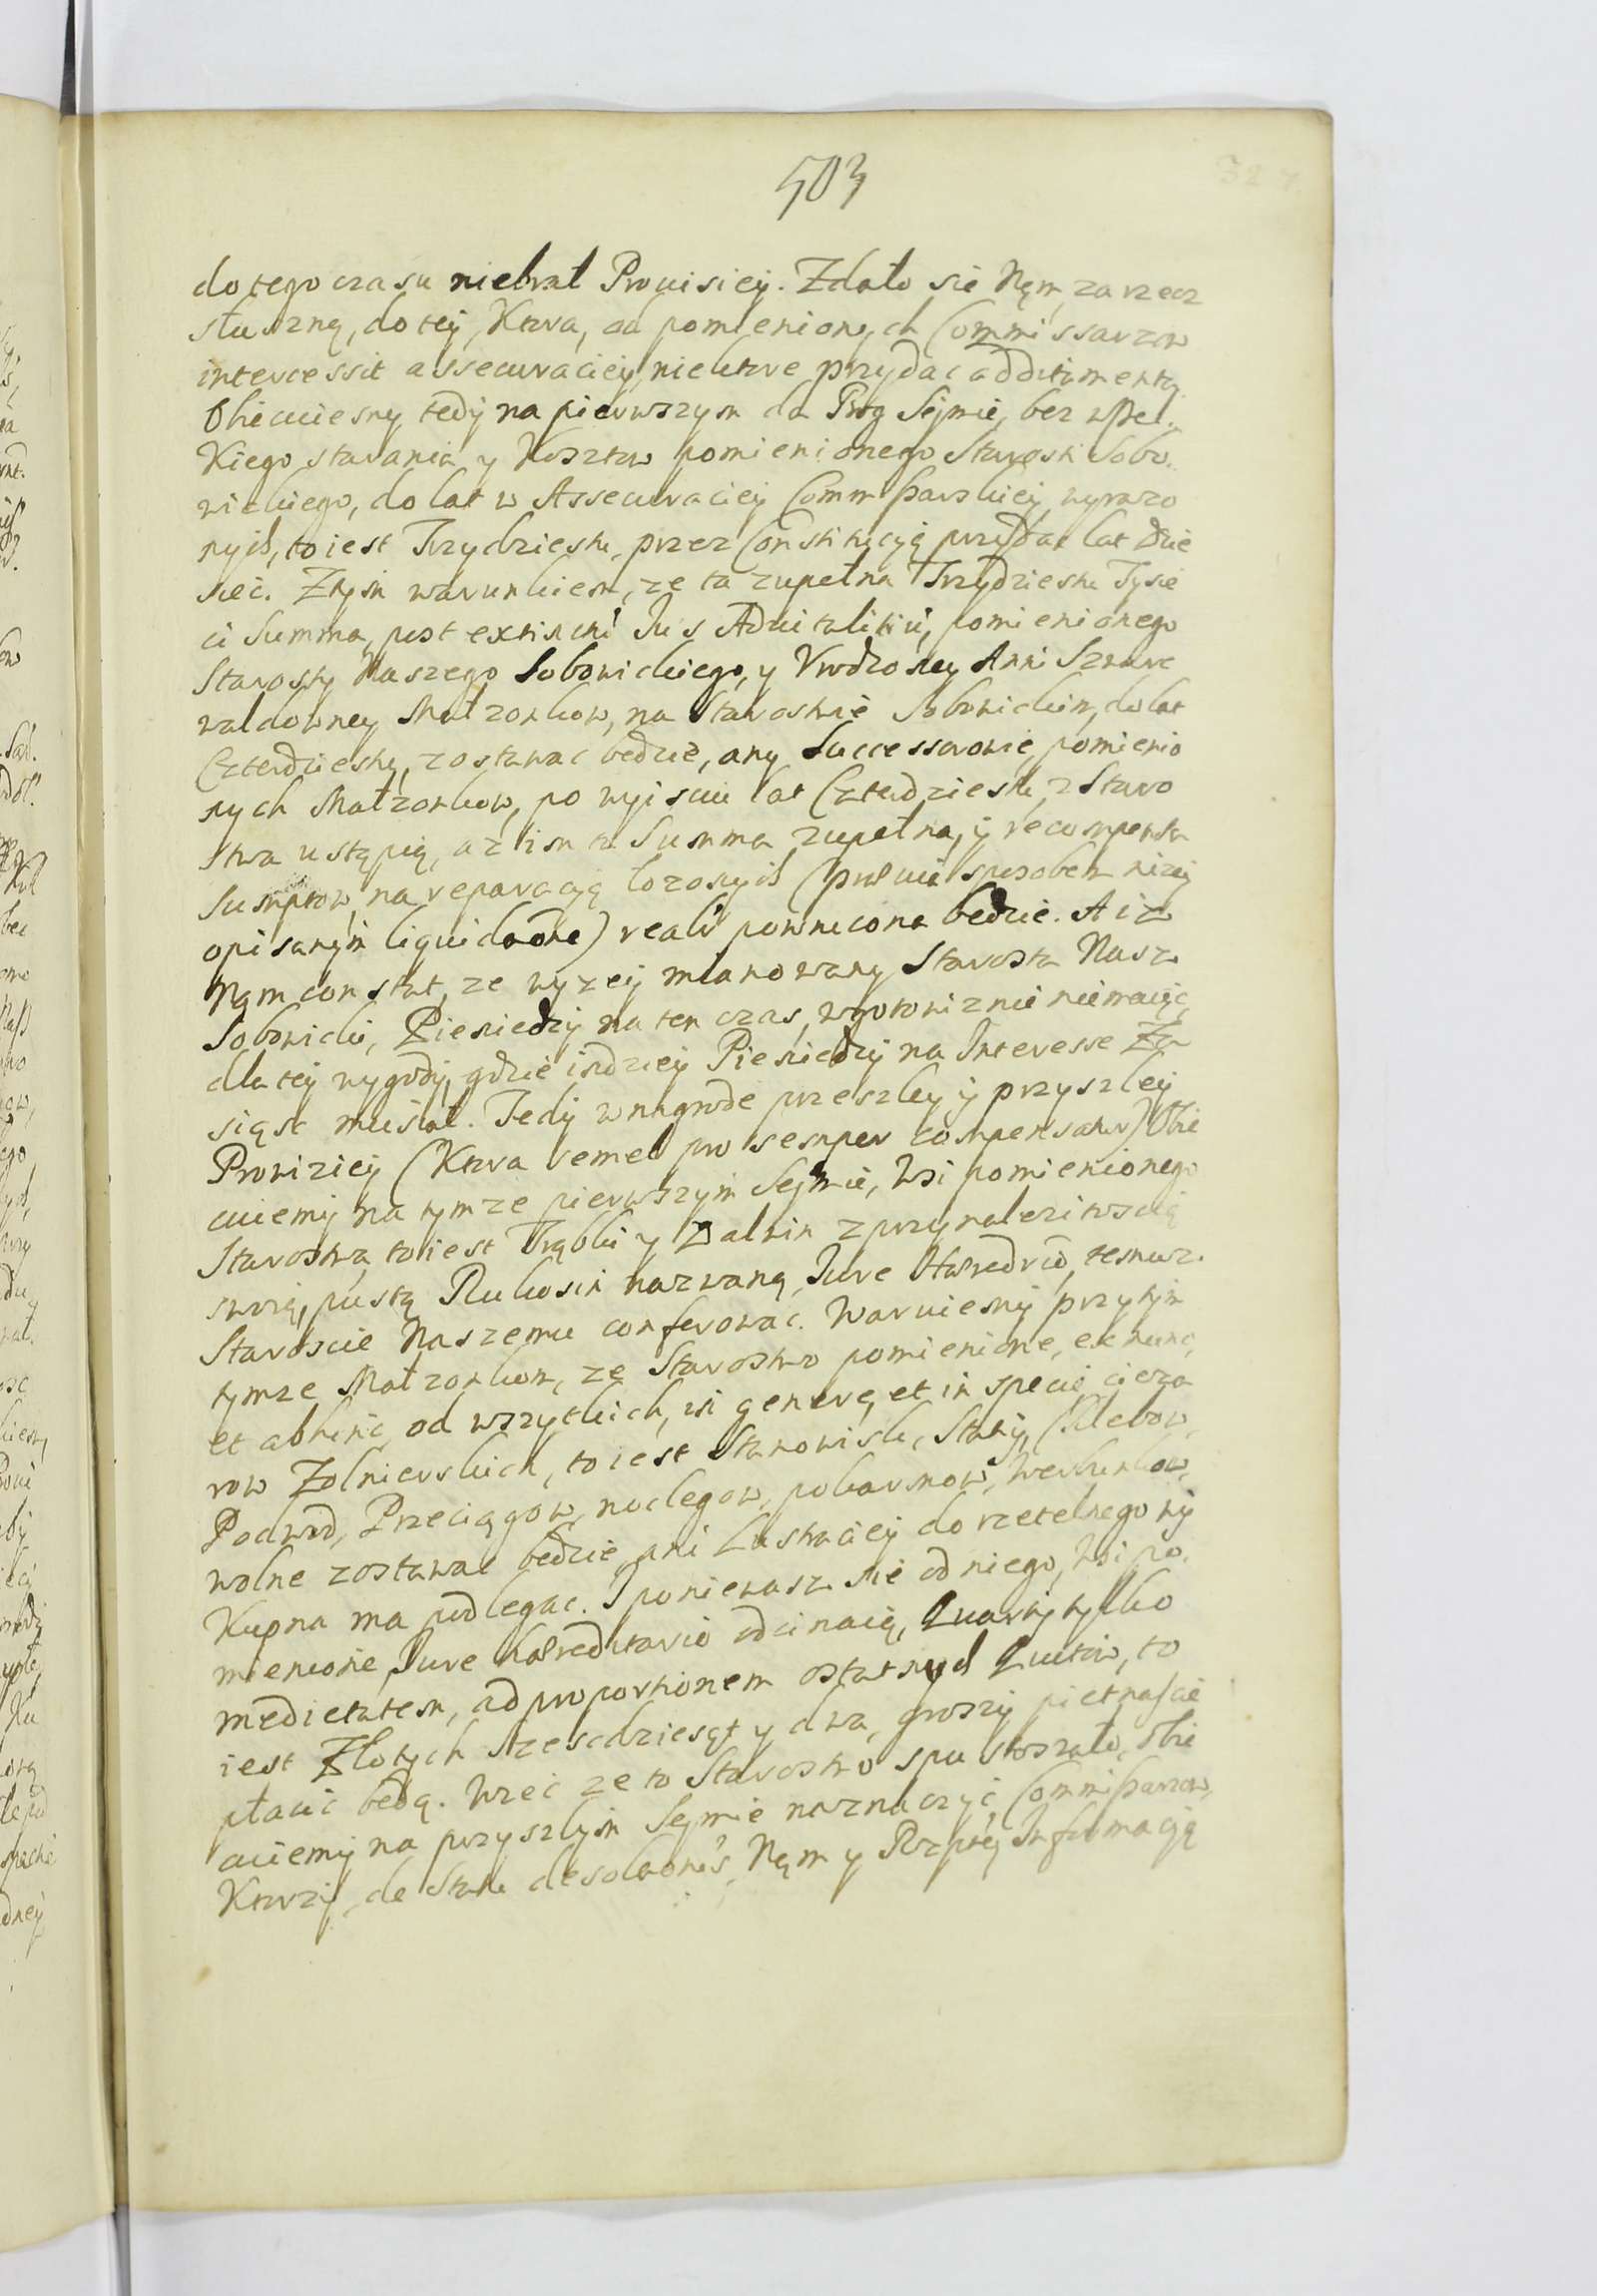 503
do tego czasu niebrał Prouisiey. Zdało sie Nąm za rzecz
słuszną, do tey, Ktora, od pomienionych Commissarzow
intercessit assecuraciey, niektore przydac additamenta.
Obiecuiemy tedy na pierwszym da Bog Seymie, bez wszel-
Kiego starania y Kosztow pomienionego Starosti Sobo-
wickiego, do lat w Assecuraciey Commißarskiey wyrazo
nych, to iest Trzydziestu, przez Constitucyą przydac lat dzie
sieć. Z tym warunkiem, ze ta zupełna Trzydziestu Tysie
ci Summa, post extincti Jus Aduitalitiu, pomienionego
Starosty Naszego Sobowickiego, y Vrodzoney Anni Szwarc
waldowney Małzonkow, na Starostwie Sobowickim, do lat
Czterdziestu, zostawac bedzie, any Successorowie pomienio
nych Małzonkow, po wyisciu lat Czterdziestu z Staro
stwa ustąpią, az im ta Summa zupełna, y recompensa
Sumptow, na reparacyą łozonych (
opisanym liquidaone) reali powrucona bedzie. A iz
Nąm constat, ze wyzey mianowany Starosta Nasz
Sobowicki, Pieniedzy na ten czas, w gotowiznie niemaiąc,
dla tey wygody, gdzie indziey Pieniedzy na Interesse Za
siąść musiał. Tedy w nagrode przeszley y przyszley
Prowiziey (Ktora semel pro semper compensatur) Obie
cuiemy na tymze pierwszym Seymie, Wsi pomienionego
Starostwa, to iest Trąbki y Zalwin z przynalezitoscią
swoią, pustą Rukosin nazwaną, Jure Haeredrio, temusz
Staroscie Naszemu conferowac. Waruiemy przytym
tymze Małzonkom, ze Starostwo pomienione, ex nunc,
et abhinc, od wszytkich, in genere, et in specie cieza
row Zolnierskich, to iest Stanowisk, Stacy, Chlebow,
Podwod, Przeciągow, noclegow, pokarmow, Werbunkow,
wolne zostawac bedzie, ani Lustraciey do rzetelnego wy
Kupna ma podlegac. I poniewasz sie od niego, Wsi po-
mienione, Jure haereditario odcinaią, Quarty tylko
medietatem, ad proportionem ostatnych Quitow, to
iest Złotych szescdziesąt y dwa, groszy pietnascie
płacic bedą. Wzec ze to Starostwo spustoszało, Obie
cuiemy na przyszłym Seymie naznaczyc Commißarzow,
Ktorzy, de statu desolaonis, Nąm y Rzptey Informacyą